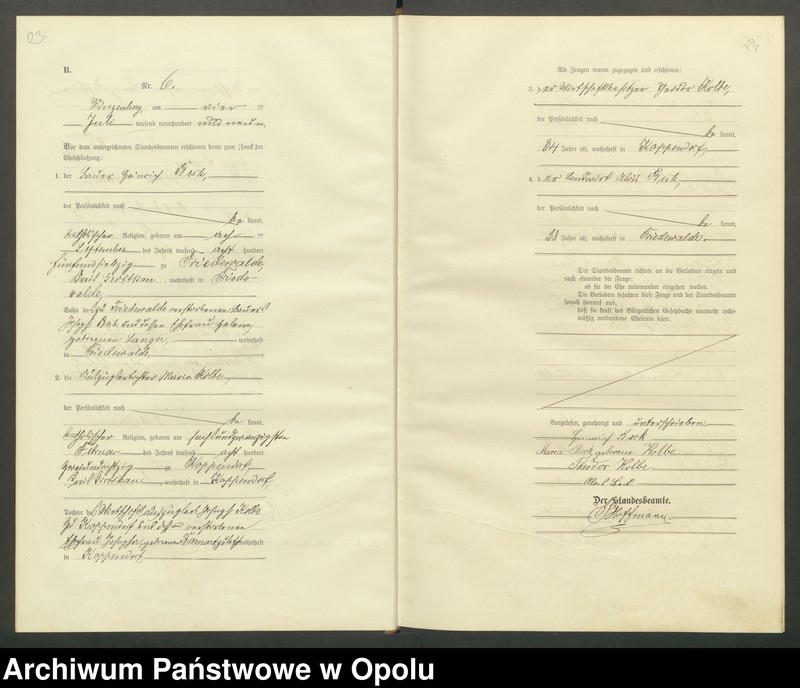 23
B.
Nr. 6.
Winzenberg am vier ten
Juli tausend neunhundert und neun.
Vor dem unterzeichneten Standesbeamten erschienen heute zum Zweck der
Eheschließung:
1. der Bauer Heinrich
der Persönlichkeit nach
be kannt,
katholischer Religion, geboren am
September des Jahres tausend acht hundert
fünfundsiebzig zu Friedewalde,
Kreis Grottkau, wohnhaft in Friede-
walde,
Sohn des zu Friedewalde verstorbenen Bauers
Joseph und dessen Ehefrau Helena,
geborenen Langer, wohnhaft
in Friedewalde,
2. die Auszüglertochter Maria Kolbe,
der Persönlichkeit nach
be kannt,
katholischer Religion, geboren am sechsundzwanzigsten
Februar des Jahres tausend acht hundert
zu Koppendorf,
Kreis Grottkau, wohnhaft in Koppendorf
Tochter des Joseph Kolbe
zu Koppendorf und verstorbenen
Ehefrau Josepha, geborenen wohnhaft
in Koppendorf,
Als Zeugen waren zugezogen und erschienen:
3. der Wirtschaftsbesitzer Theodor Kolbe,
der Persönlichkeit nach
be kannt,
34 Jahre alt, wohnhaft in Koppendorf,
4. der Landwirt Alois
der Persönlichkeit nach
be kannt,
28 Jahre alt, wohnhaft in Friedewalde.
Der Standesbeamte richtete an die Verlobten einzeln und
nach einander die Frage:
ob sie die Ehe miteinander eingehen wollen.
Die Verlobten bejahten diese Frage und der Standesbeamte
sprach hierauf aus,
daß sie kraft des Bürgerlichen Gesetzbuchs nunmehr recht-
mäßig verbundene Eheleute seien.
Vorgelesen, genehmigt und unterschrieben
Heinrich
Maria geborene Kolbe
Theodor Kolbe
Der Standesbeamte.
Hoffmann.
Archiwum Państwowe w Opolu